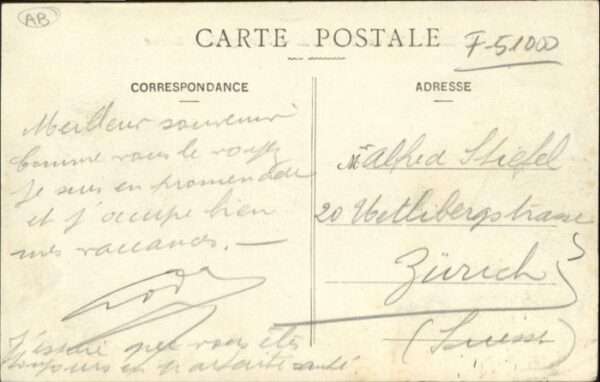 AB
CARTE POSTALE
F-51000
CORRESPONDANCE
ADRESSE
Meilleur souvenir
Comme vous le voyez
je suis en promenade
et j'occupe bien
mes vaccances. —
J'espère que vous êtes
toujours en parfaite santé
Mr Alfred Stiefel
20 Uetlibergstrasse
Zürich
(Suisse)